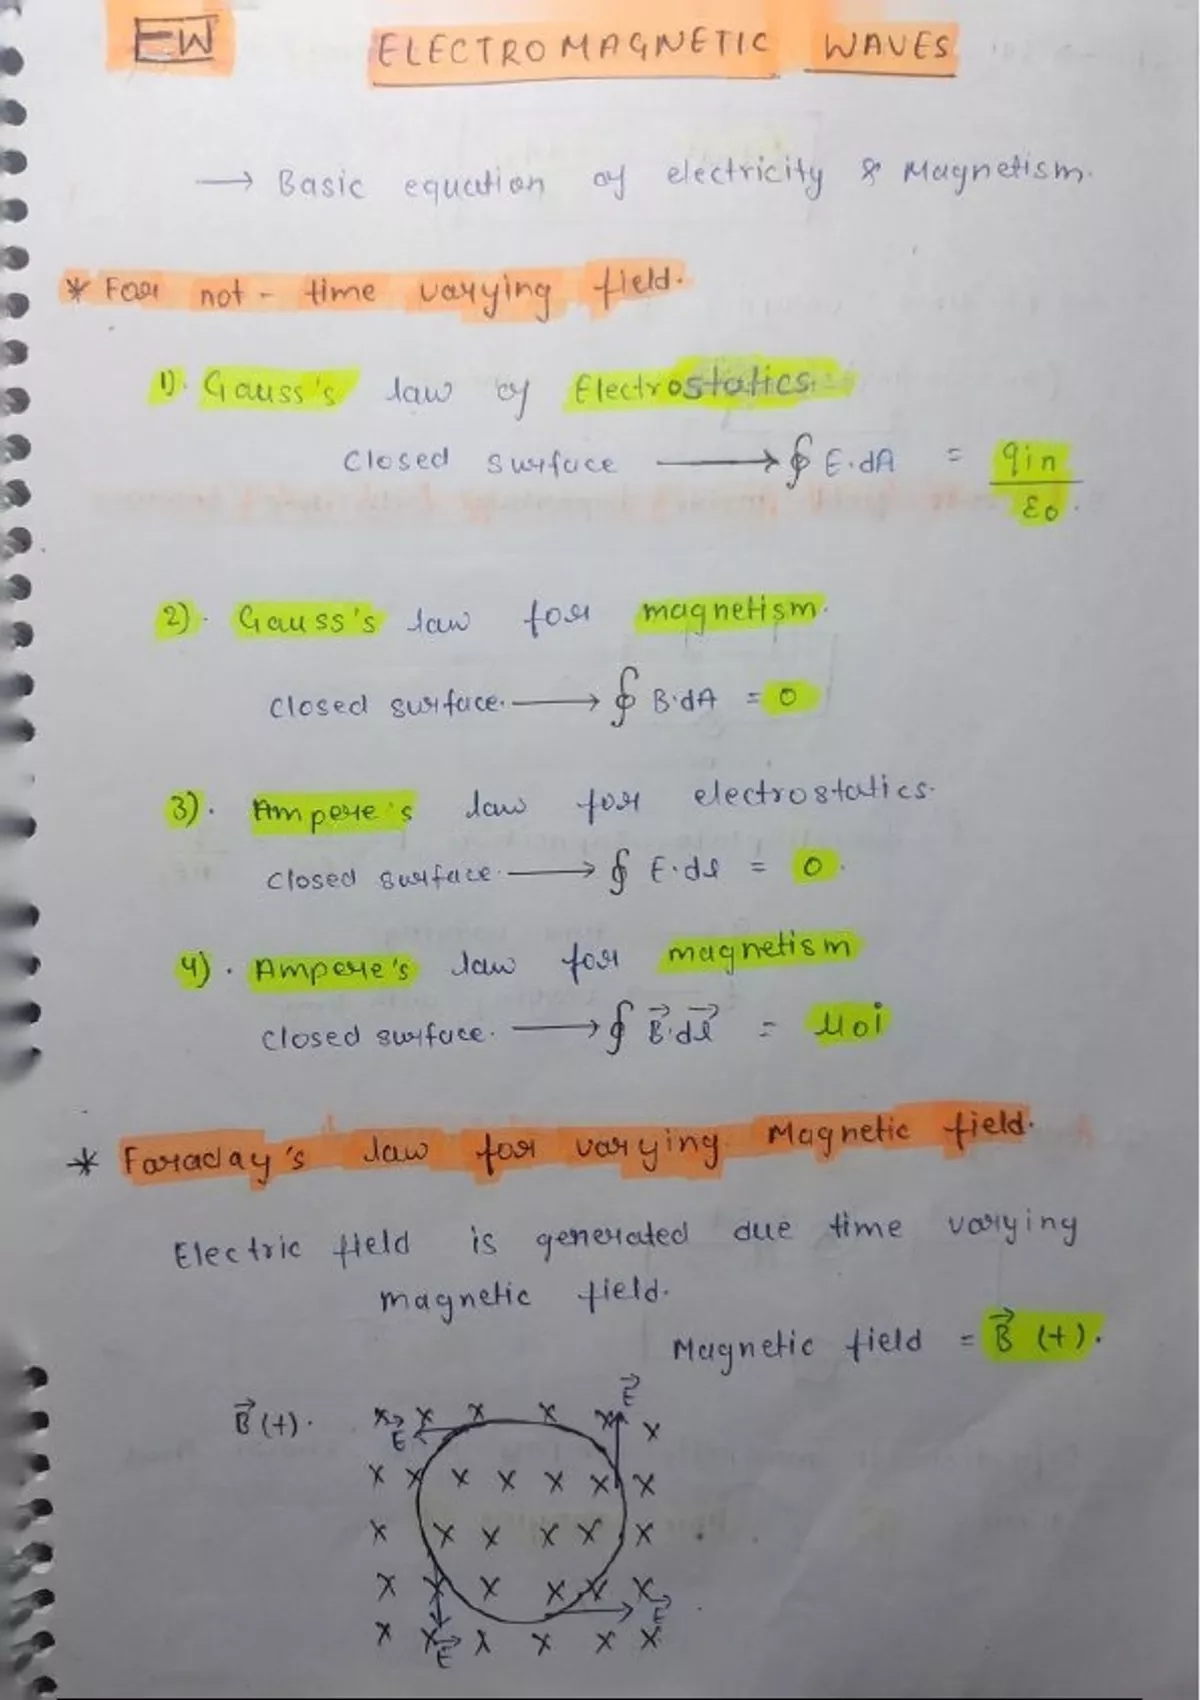 EW
ELECTROMAGNETIC WAVES
→ Basic equation of electricity & Magnetism.
* For not-time varying field.
1). Gauss's law of Electrostatics.
Closed surface → ∮ E.dA = qin/ε0.
2). Gauss's law for magnetism.
Closed surface. → ∮ B.dA = 0
3). Ampere's law for electrostatics.
Closed surface. → ∮ E.dl = 0.
4). Ampere's law for magnetism
Closed surface. → ∮ B⃗.dl⃗ = μ0i
* Faraday's law for varying Magnetic field.
Electric field is generated due time varying
magnetic field.
Magnetic field = B⃗ (t).
B⃗ (t).
x x x x x x
E⃗ E⃗
x x x x x x x
x x x x x x
x x x x x x
E⃗
x x x x x x
E⃗